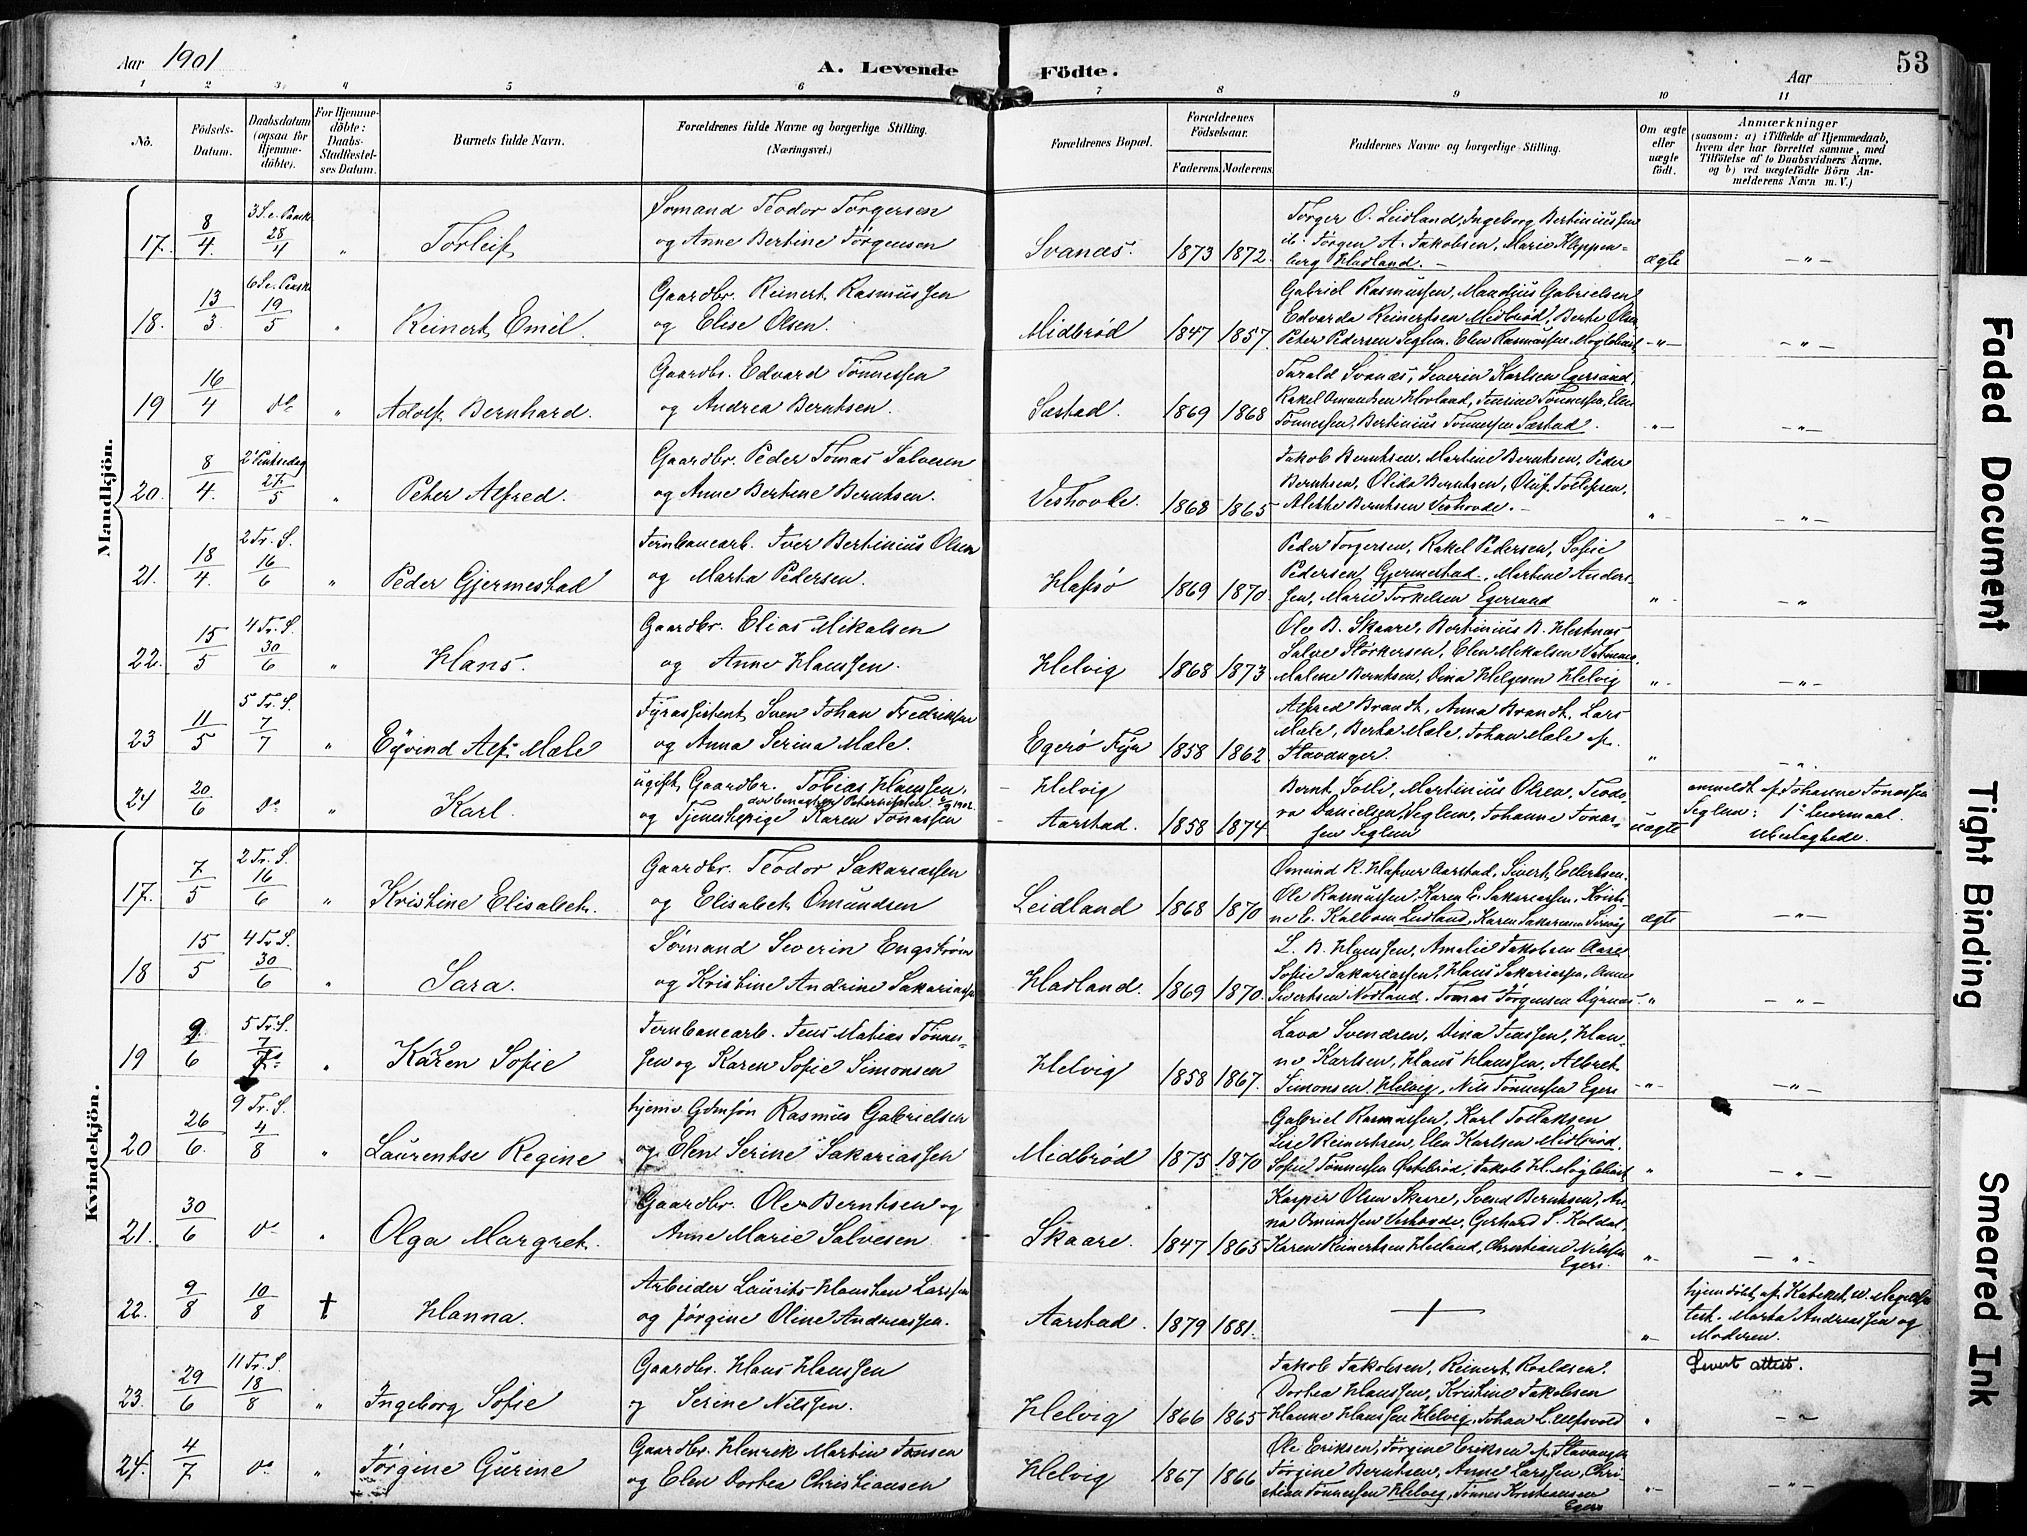 Aar 1901
A. Levende Födte.
Aar
53
1 2 3 4 5 6 7 8 9 10 11
No.
Födsels-Datum.
Daabsdatum (ogsaa for Hjemmedöbte).
For Hjemmedöbte: Daabs-Stadfæstelses Datum.
Barnets fulde Navn.
Forældrenes fulde Navne og borgerlige Stilling. (Næringsvei.)
Forældrenes Bopæl.
Forældrenes Födselsaar.
Faderens. Moderens.
Faddernes Navne og borgerlige Stilling.
Om ægte eller uægte födt.
Anmærkninger
(saasom: a) i Tilfælde af Hjemmedaab, hvem der har forrettet samme, med Tilföielse af to Daabsvidners Navne, og b) ved uægtefödte Börn Anmelderens Navn m. V.)
Mandkjön.
17. 8/4. 3 S. e. Paask 28/4 " Torleif
Sömand Teodor Torgersen
og Anne Bertine Jörgensen
Svanæs. 1873 1872.
Torger O. Leidland, Ingeborg Bertiniussen
ib: Jörgen A. Jakobsen, Marie Kleppen-
berg Hadland. —
ægte —"—
18. 13/3. 6 S. e. Paask 19/5 " Reinert Emil.
Gaardbr. Reinert Rasmussen
og Elise Olsen.
Midbröd 1847 1857.
Gabriel Rasmussen, Gabrielsen
Edvarda Reinertsen Midbröd, Berte Olsen
Peter Pedersen Seglem. Elen Rasmussen
—"— —"—
19 16/4 do " Adolf Bernhard.
Gaardbr. Edvard Tönnessen
og Andrea Berntsen.
Sæstad. 1869 1868
Tarald Svanæs, Severin Karlsen Egersund,
Rakel Omundsen Hovland, Tönnessen, Elen
Tönnessen, Bertinius Tönnessen Sæstad.
—"— —"—
20. 8/4. 2 Pintsedag 27/5 " Peter Alfred.
Gaardbr. Peder Tomas Salvesen
og Anne Bertine Berntsen.
Veshovde. 1868 1865
Jakob Berntsen, Martine Berntsen, Peder
Berntsen, Olida Berntsen, Oluf Tollefsen,
Alette Berntsen Veshovde. —
"— —"—
21. 18/4. 2 Tr. S. 16/6 " Peder Gjermestad
Jernbanearb. Iver Bertinius Olsen
og Marta Pedersen.
Hafsö 1869 1870
Peder Torgersen, Rakel Pedersen, Sofie
Pedersen Gjermestad, Martine Anders-
sen, Marie Torkelsen Egersund
"— —"—
22. 15/5 4 Tr. S. 30/6 " Hans.
Gaardbr. Elias Mikalsen
og Anne Hanssen.
Helvig 1868 1873
Ole B. Skaare, Bertinius B. Hestnæs
Salve Störkersen, Elen Mikalsen
Malene Berntsen, Dina Helgesen Helvig
"— —"—
23 11/5 5 Tr. S. 7/7 " Eÿvind Alf: Mæle
Fyrassistent Sven Johan Fredriksen
og Anna Serina Mæle.
Egerö Fyr 1858 1862
Alfred Brandt, Anna Brandt, Lars
Mæle, Berta Mæle, Johan Mæle af
Stavanger.
" —"—
24 20/6 do " Karl.
ugift Gaardbr. Tobias Hanssen,
og Tjenestepige Karen Jonassen
Helvig
Aarstad. 1858 1874
Bernt Solli, Martinius Olsen, Teodo-
ra Danielsen Seglem, Johanne Jonas-
sen Seglem
uægte
anmeldt af Johanne Jonassen
Seglem: 1ste Leiermaal
ubeslægtede.
Kvindekjön.
17. 7/5 2 Tr. S. 16/6 " Kristine Elisabet.
Gaardbr. Teodor Sakariassen
og Elisabet Omundsen
Leidland 1868 1870
Omund R. Aarstad, Sivert Ellertsen.
Ole Rasmussen, Karen E. Sakariassen, Kristi-
ne E. Leidland, Karen Sakariassen
ægte —"—
18 15/5 4 Tr. S. 30/6 " Sara.
Sömand Severin Engström
og Kristine Andrine Sakariassen
Hadland. 1869 1870.
L. B. Hanssen, Amalie Jakobsen Aase
Sofie Sakariassen, Hans Sakariassen, Anne
Sivertsen Nodland. Tomas Jörgensen
" —"—
19 9/6 5 Tr. S. 7/7 " Karen Sofie
Jernbanearb. Jens Matias Tönnes-
sen og Karen Sofie Simonsen
Helvig 1858 1867.
Lava Svendsen, Dina Hanssen, Han-
ne Karlsen, Hans Hanssen, Albret
Simonsen Helvig, Nils Tönnessen Egers
—"— —"—
20 26/6. 9 Tr. S. 4/8 " Laurentse Regine
hjemv. Gdmsön Rasmus Gabrielsen
og Elen Serine Sakariassen
Midbröd 1875 1870
Gabriel Rasmussen, Karl Tollaksen
Lise Reinertsen, Elen Karlsen Midbröd.
Sofie Tönnessen Östebröd, Jakob H.
" —"—
21. 30/6 do " Olga Margret.
Gaardbr. Ole Berntsen og
Anne Marie Salvesen
Skaare. 1847 1865
Kasper Olsen Skaare, Svend Berntsen, An-
na Omundsen Veshovde, Gerhard S.
Karen Reinertsen Hetland, Christiane Nilsen
Egers.
"— —"—
22. 9/8 10/8 † Hanna.
Arbeider Laurits Hansken Larsen
og Jörgine Oline Andreassen.
Aarstad. 1879 1881.
+
"—
hjemdöbt af Kateket W.
test. Marta Andreassen og
Moderen.
23. 29/6 11 Tr. S. 18/8 " Ingeborg Sofie
Gaardbr. Hans Hanssen
og Serine Nilssen.
Helvig 1866 1865
Jakob Jakobsen, Reinert Roaldsen.
Dortea Hanssen, Kristine Jakobsen
Hanne Hanssen Helvig, Johan L.
"
attest.
—"—
24. 4/7 do " Jörgine Gurine
Gaardbr. Henrik Martin Jansen
og Elen Dortea Christiansen
Helvig 1867 1866
Ole Eriksen, Jörgine Eriksen af Stavanger
Jörgine Berntsen, Anne Larssen, Chri-
stian Tönnessen Helvig, Tönnes Kristiansen
Egers
"— —"—
Faded Document
Tight Binding
Smeared Ink